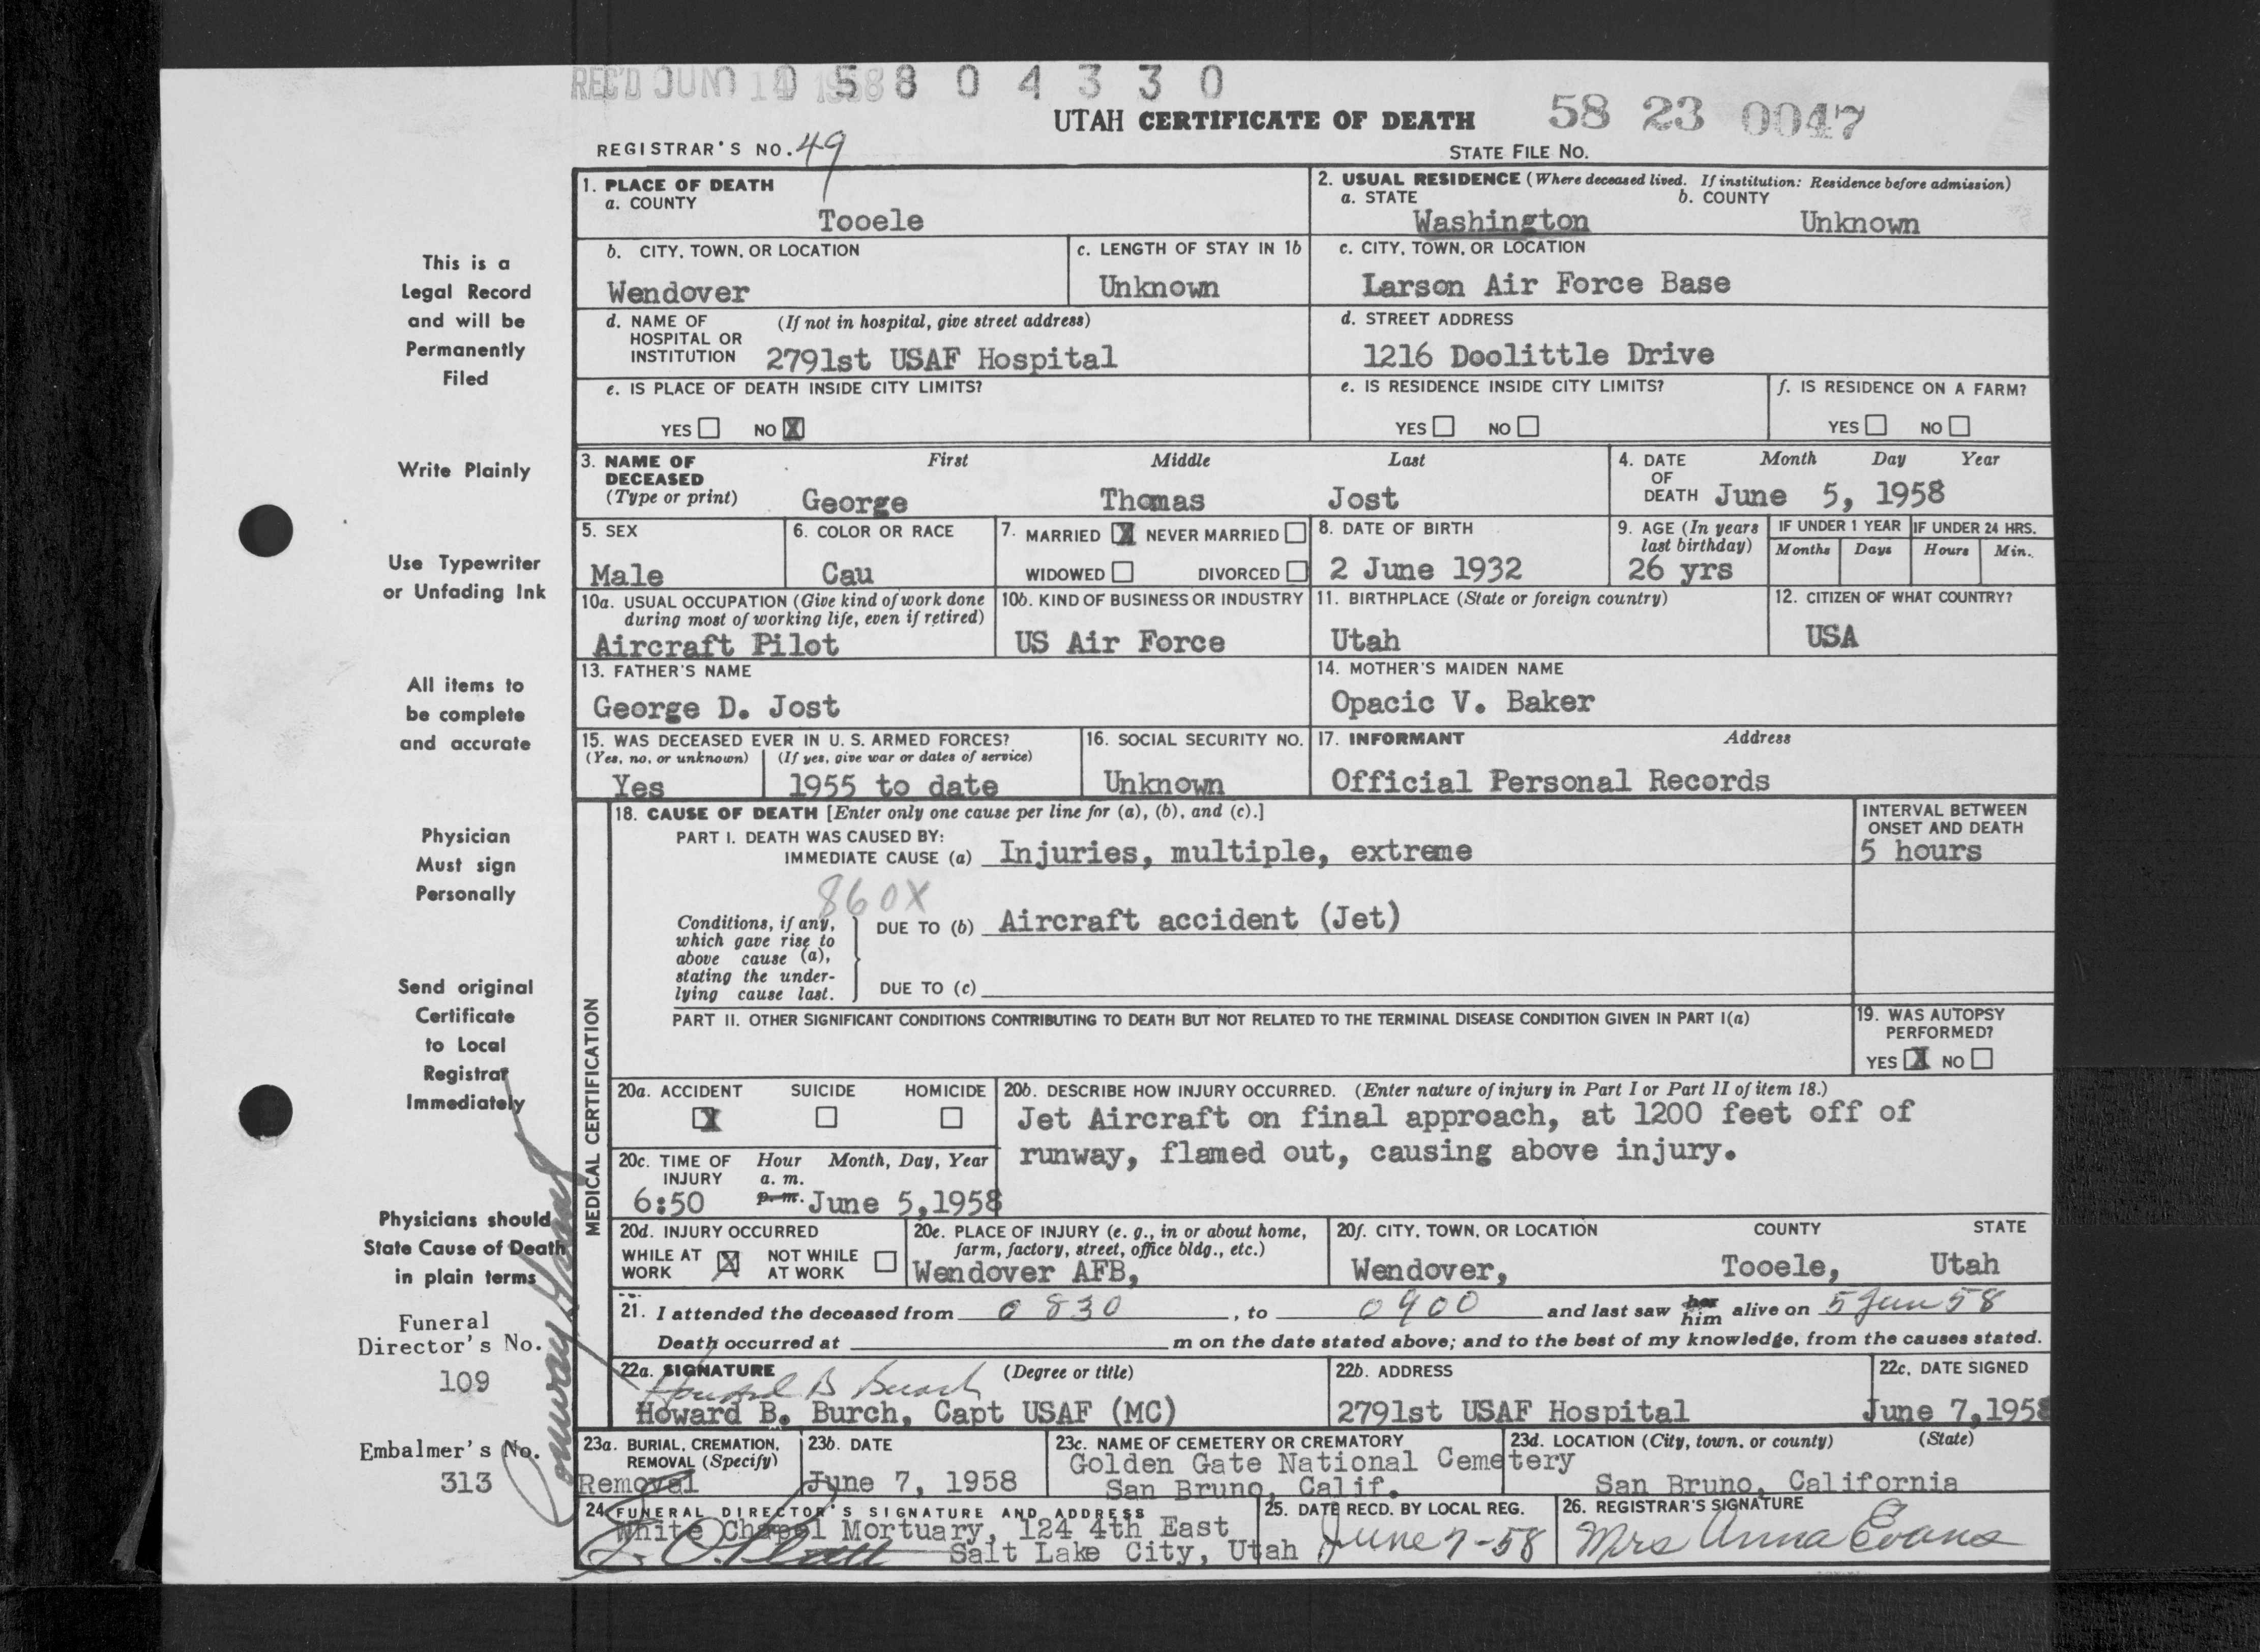 REC'D JUN 10 1958
0 5 8 0 4 3 3 0
UTAH CERTIFICATE OF DEATH
58 23 0047
REGISTRAR'S NO. 49
STATE FILE NO.
1. PLACE OF DEATH
a. COUNTY
Tooele
2. USUAL RESIDENCE (Where deceased lived. If institution: Residence before admission)
a. STATE b. COUNTY
Washington Unknown
b. CITY, TOWN, OR LOCATION
Wendover
c. LENGTH OF STAY IN 1b
Unknown
c. CITY, TOWN, OR LOCATION
Larson Air Force Base
d. NAME OF (If not in hospital, give street address)
HOSPITAL OR
INSTITUTION 2791st USAF Hospital
d. STREET ADDRESS
1216 Doolittle Drive
e. IS PLACE OF DEATH INSIDE CITY LIMITS?
YES NO X
e. IS RESIDENCE INSIDE CITY LIMITS?
YES NO
f. IS RESIDENCE ON A FARM?
YES NO
3. NAME OF First Middle Last
DECEASED
(Type or print) George Thomas Jost
4. DATE Month Day Year
OF
DEATH June 5, 1958
5. SEX
Male
6. COLOR OR RACE
Cau
7. MARRIED X NEVER MARRIED
WIDOWED DIVORCED
8. DATE OF BIRTH
2 June 1932
9. AGE (In years
last birthday)
26 yrs
IF UNDER 1 YEAR
Months Days
IF UNDER 24 HRS.
Hours Min.
10a. USUAL OCCUPATION (Give kind of work done
during most of working life, even if retired)
Aircraft Pilot
10b. KIND OF BUSINESS OR INDUSTRY
US Air Force
11. BIRTHPLACE (State or foreign country)
Utah
12. CITIZEN OF WHAT COUNTRY?
USA
13. FATHER'S NAME
George D. Jost
14. MOTHER'S MAIDEN NAME
Opacic V. Baker
15. WAS DECEASED EVER IN U. S. ARMED FORCES?
(Yes, no, or unknown) (If yes, give war or dates of service)
Yes 1955 to date
16. SOCIAL SECURITY NO.
Unknown
17. INFORMANT Address
Official Personal Records
MEDICAL CERTIFICATION
18. CAUSE OF DEATH [Enter only one cause per line for (a), (b), and (c).]
PART I. DEATH WAS CAUSED BY:
IMMEDIATE CAUSE (a) Injuries, multiple, extreme
INTERVAL BETWEEN
ONSET AND DEATH
5 hours
860X
Conditions, if any,
which gave rise to
above cause (a),
stating the under-
lying cause last.
DUE TO (b) Aircraft accident (Jet)
DUE TO (c)
PART II. OTHER SIGNIFICANT CONDITIONS CONTRIBUTING TO DEATH BUT NOT RELATED TO THE TERMINAL DISEASE CONDITION GIVEN IN PART I(a)
19. WAS AUTOPSY
PERFORMED?
YES X NO
20a. ACCIDENT SUICIDE HOMICIDE
X
20b. DESCRIBE HOW INJURY OCCURRED. (Enter nature of injury in Part I or Part II of item 18.)
Jet Aircraft on final approach, at 1200 feet off of
runway, flamed out, causing above injury.
20c. TIME OF Hour Month, Day, Year
INJURY a. m.
6:50 p. m. June 5,1958
20d. INJURY OCCURRED
WHILE AT X NOT WHILE
WORK AT WORK
20e. PLACE OF INJURY (e. g., in or about home,
farm, factory, street, office bldg., etc.)
Wendover AFB,
20f. CITY, TOWN, OR LOCATION COUNTY STATE
Wendover, Tooele, Utah
21. I attended the deceased from 0830, to 0900 and last saw her him alive on 5 Jun 58
Death occurred at m on the date stated above; and to the best of my knowledge, from the causes stated.
22a. SIGNATURE (Degree or title)
Howard B Burch
Howard B. Burch, Capt USAF (MC)
22b. ADDRESS
2791st USAF Hospital
22c. DATE SIGNED
June 7,1958
23a. BURIAL, CREMATION,
REMOVAL (Specify)
Removal
23b. DATE
June 7, 1958
23c. NAME OF CEMETERY OR CREMATORY
Golden Gate National Cemetery
San Bruno, Calif.
23d. LOCATION (City, town, or county) (State)
San Bruno, California
24. FUNERAL DIRECTOR'S SIGNATURE AND ADDRESS
White Chapel Mortuary, 124 4th East
Salt Lake City, Utah
25. DATE RECD. BY LOCAL REG.
June 7-58
26. REGISTRAR'S SIGNATURE
Mrs Anna Evans
This is a
Legal Record
and will be
Permanently
Filed
Write Plainly
Use Typewriter
or Unfading Ink
All items to
be complete
and accurate
Physician
Must sign
Personally
Send original
Certificate
to Local
Registrar
Immediately
Physicians should
State Cause of Death
in plain terms
Funeral
Director's No.
109
Embalmer's No.
313